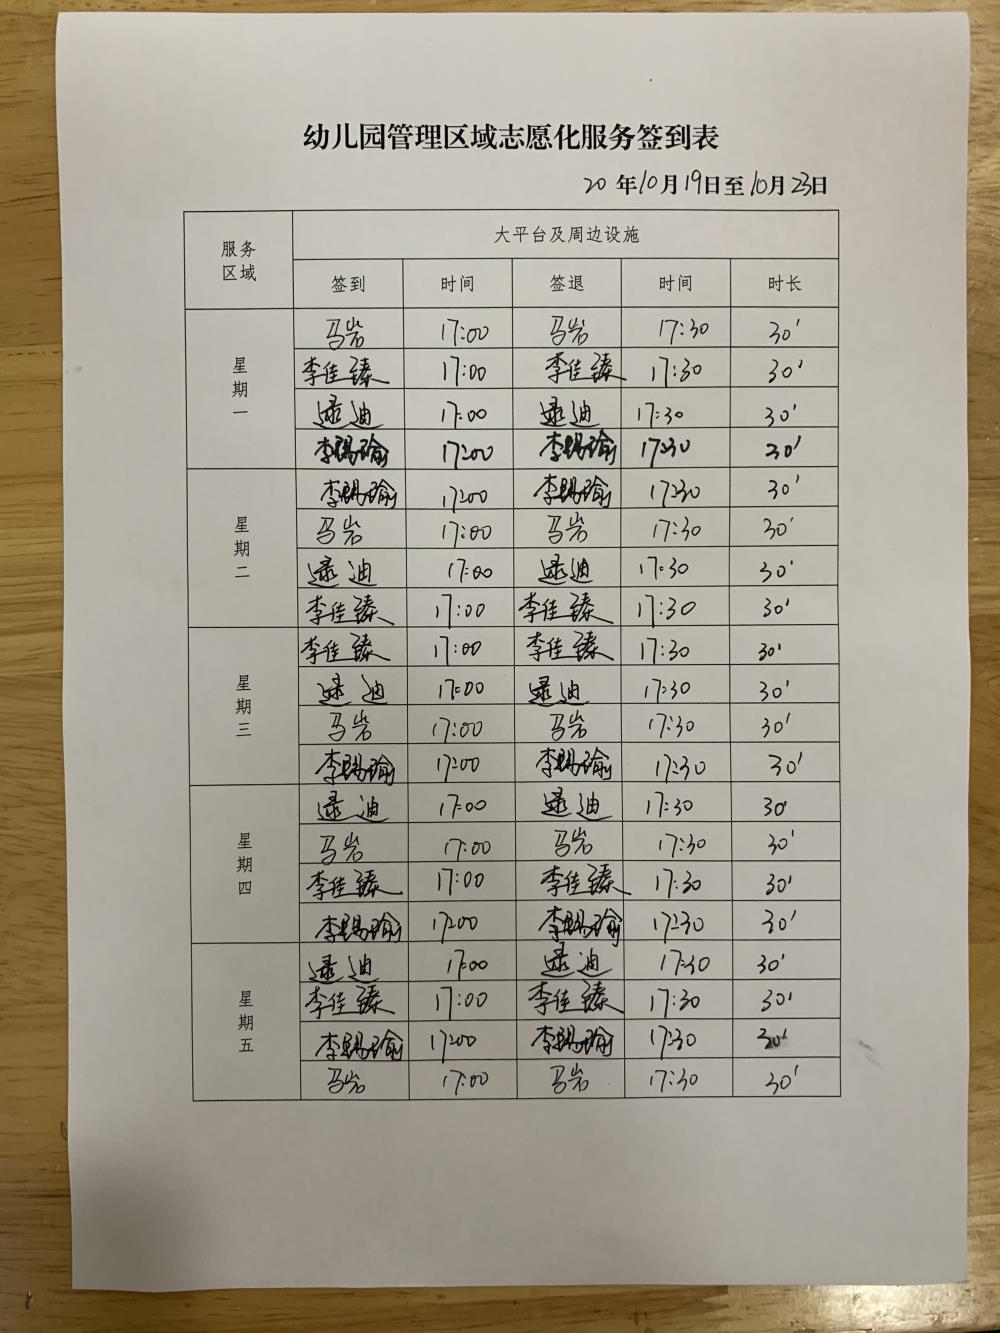 幼儿园管理区域志愿化服务签到表
20 年10月19日至10月23日
服务区域 大平台及周边设施
签到 时间 签退 时间 时长
星期一
马岩 17:00 马岩 17:30 30'
李佳臻 17:00 李佳臻 17:30 30'
逯迪 17:00 逯迪 17:30 30'
17:00 17:30 30'
星期二
17:00 17:30 30'
马岩 17:00 马岩 17:30 30'
逯迪 17:00 逯迪 17:30 30'
李佳臻 17:00 李佳臻 17:30 30'
星期三
李佳臻 17:00 李佳臻 17:30 30'
逯迪 17:00 逯迪 17:30 30'
马岩 17:00 马岩 17:30 30'
17:00 17:30 30'
星期四
逯迪 17:00 逯迪 17:30 30'
马岩 17:00 马岩 17:30 30'
李佳臻 17:00 李佳臻 17:30 30'
17:00 17:30 30'
星期五
逯迪 17:00 逯迪 17:30 30'
李佳臻 17:00 李佳臻 17:30 30'
17:00 17:30 30'
马岩 17:00 马岩 17:30 30'